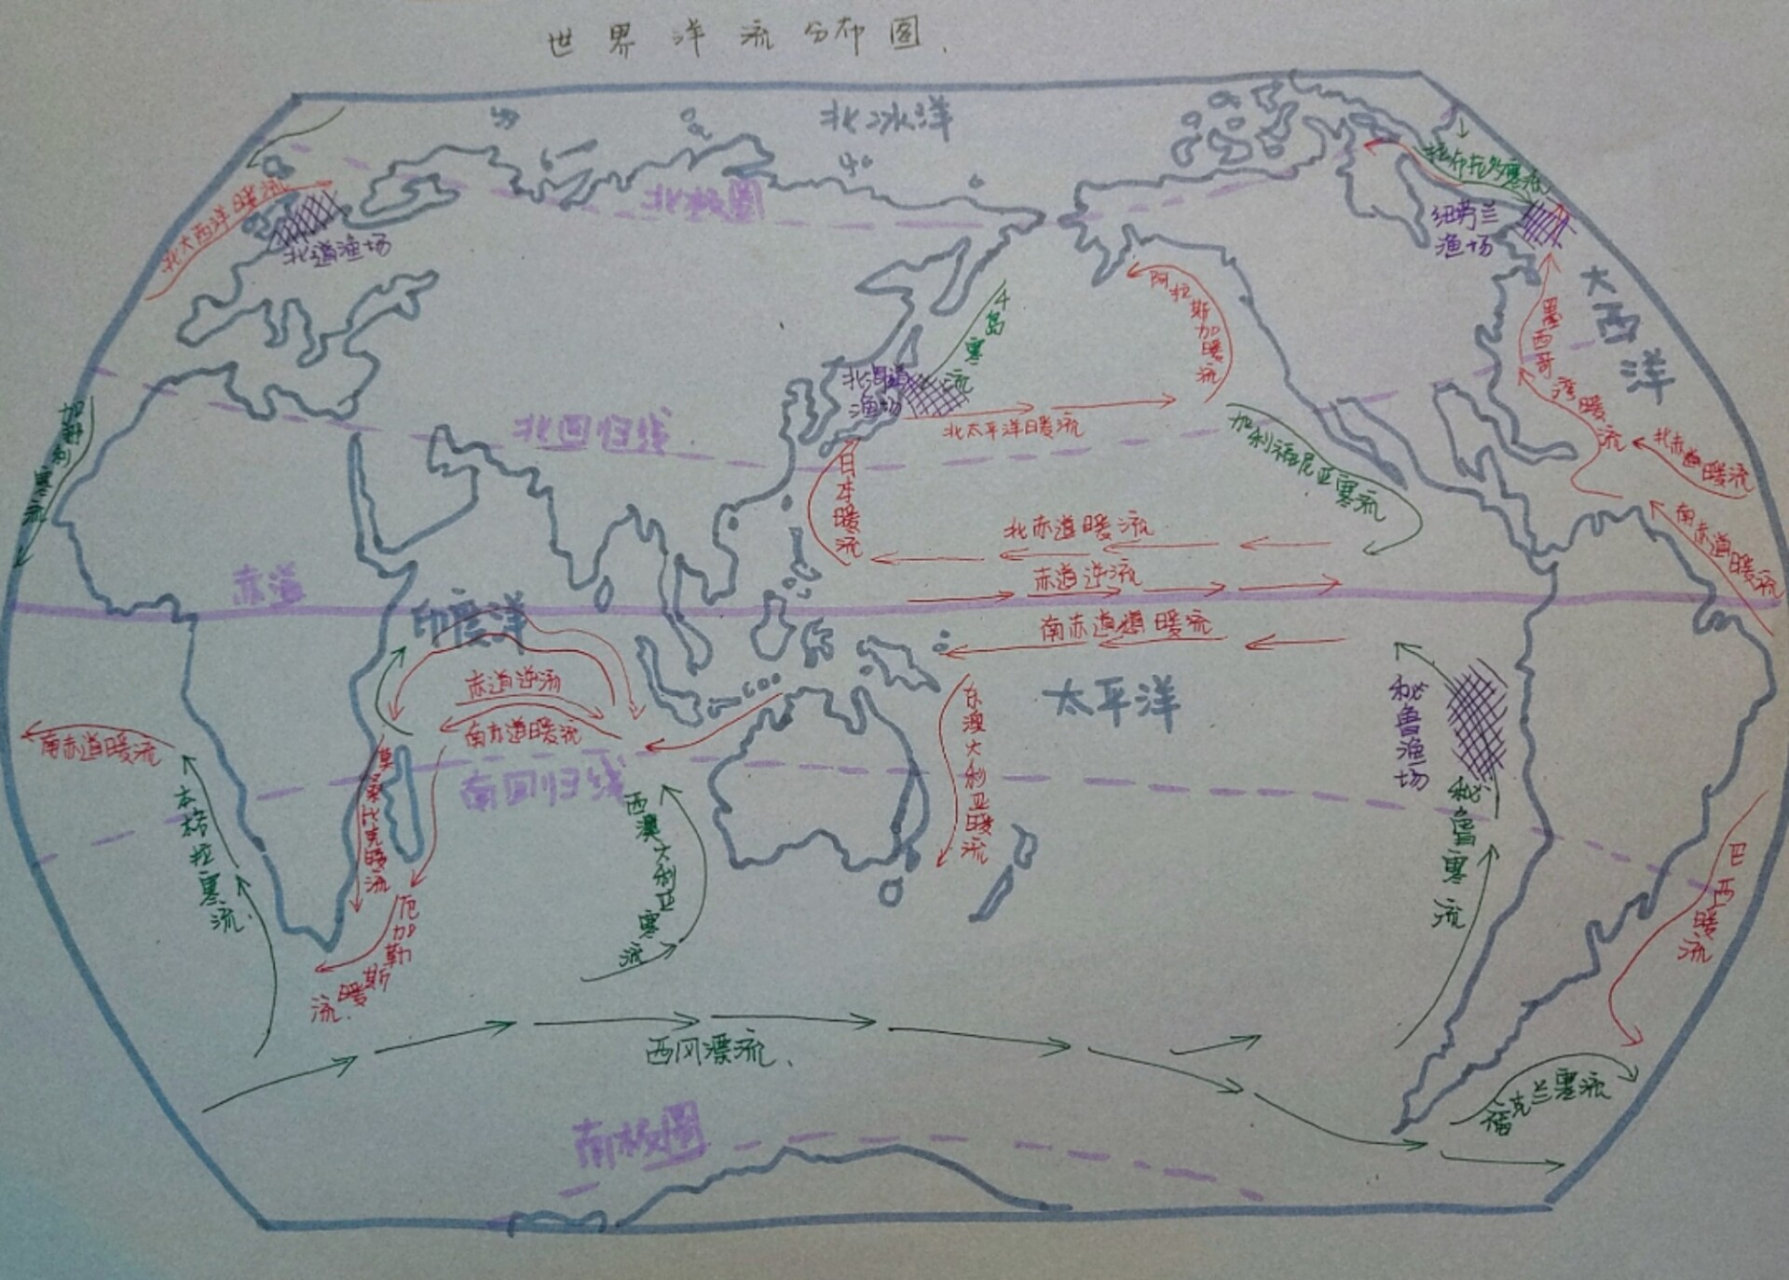 世界洋流分布图.
北冰洋
北极圈
拉布拉多寒流
北大西洋暖流
北道渔场
纽芬兰
渔场
大西洋
千岛寒流
阿拉斯加暖流
墨西哥湾暖流
北海道
渔场
北太平洋暖流
加那利寒流
北回归线
加利福尼亚寒流
日本暖流
北赤道暖流
北赤道暖流
南赤道暖流
赤道逆流
赤道
印度洋
南赤道暖流
太平洋
赤道逆流
南赤道暖流
南赤道暖流
东澳大利亚暖流
秘鲁渔场
南回归线
莫桑比克暖流
本格拉寒流.
西澳大利亚寒流
秘鲁寒流
巴西暖流
厄加勒斯暖流.
西风漂流.
福克兰寒流
南极圈